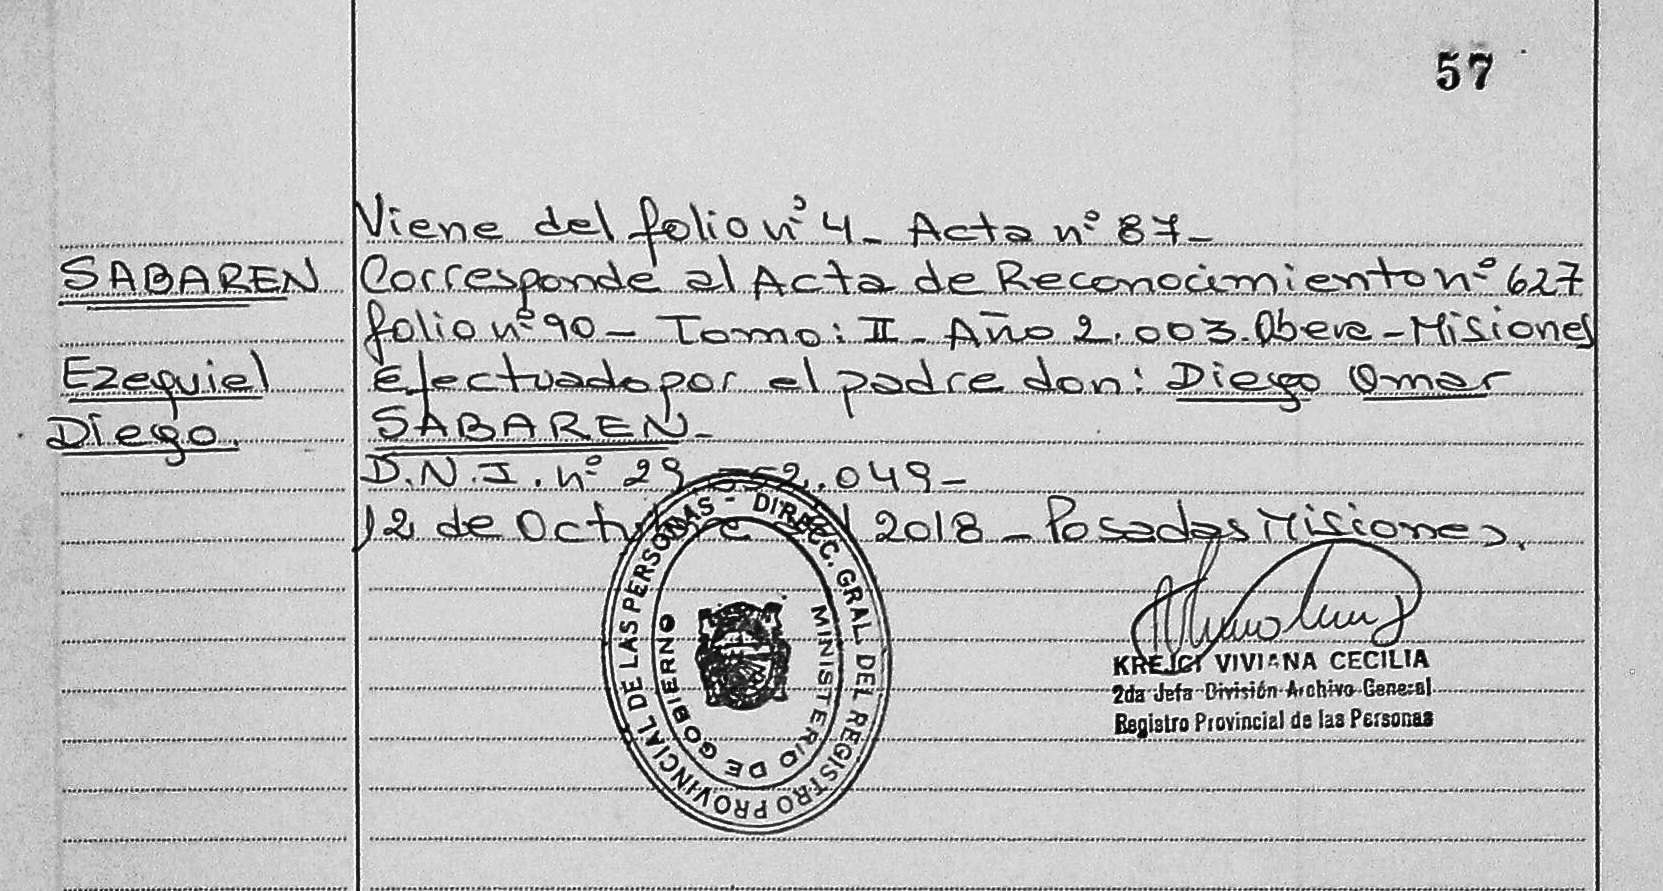 57
Viene del folio nº 4_ Acta nº 87_
SABAREN
Corresponde al Acta de Reconocimiento nº 627
folio nº 90 _ Tomo: II _ Año 2.003. Obera - Misiones
Ezequiel
Efectuado por el padre don: Diego Omar
Diego.
SABAREN_
D.N.I. nº 29. 52.049_
12 de Octubre del 2018 _ Posadas Misiones.
DIRECC. GRAL. DEL REGISTRO PROVINCIAL DE LAS PERSONAS -
MINISTERIO DE GOBIERNO
KREJCI VIVIANA CECILIA
2da Jefa División Archivo General
Registro Provincial de las Personas